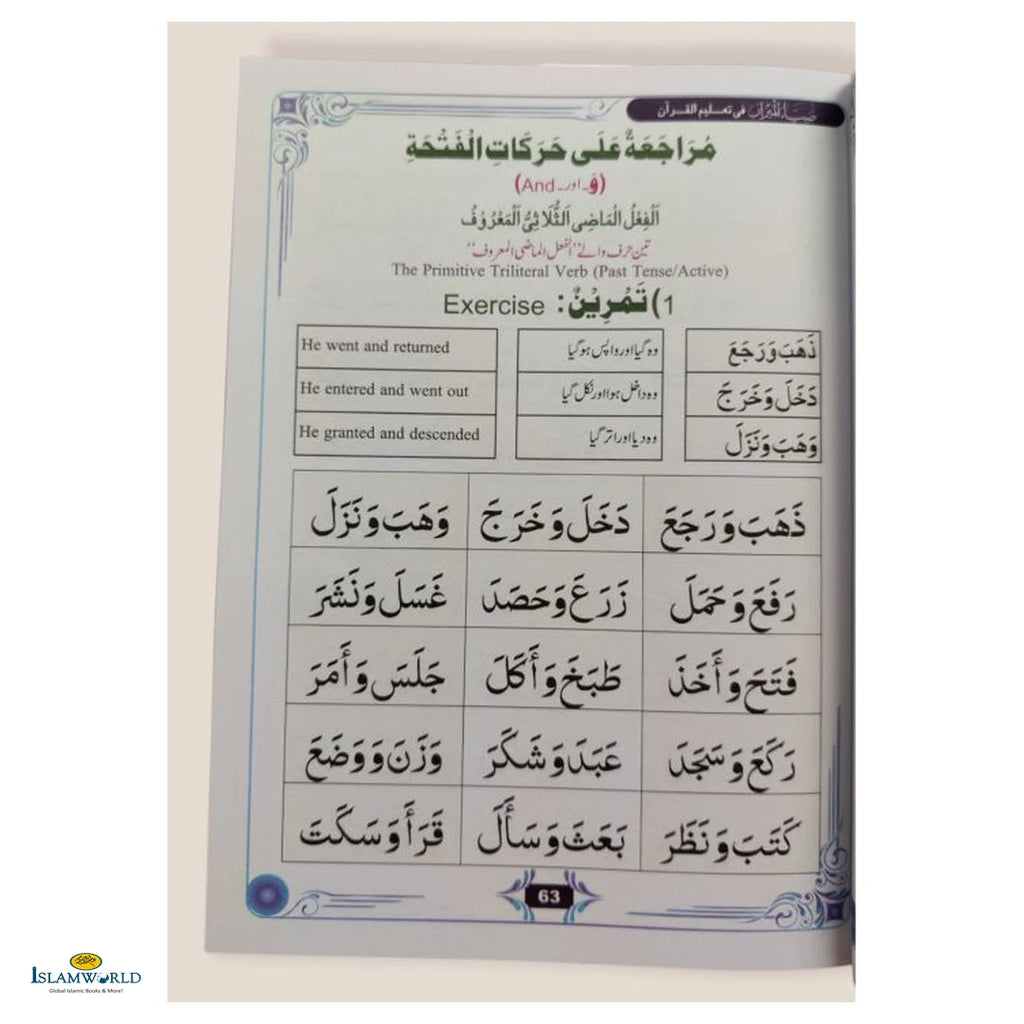 ضیاء المیزان فی تعلیم القرآن
مُرَاجَعَةٌ عَلَى حَرَكَاتِ الْفَتْحَةِ
(وَ - اور - And)
اَلْفِعْلُ الْمَاضِى اَلثُّلَاثِىُّ اَلْمَعْرُوْفُ
تین حرف والے ”الفعل الماضی المعروف“
The Primitive Triliteral Verb (Past Tense/Active)
1) تَمْرِيْنٌ : Exercise
ذَهَبَ وَرَجَعَ وہ گیا اور واپس ہوگیا He went and returned
دَخَلَ وَخَرَجَ وہ داخل ہوا اور نکل گیا He entered and went out
وَهَبَ وَنَزَلَ وہ دیا اور اتر گیا He granted and descended
ذَهَبَ وَرَجَعَ دَخَلَ وَخَرَجَ وَهَبَ وَنَزَلَ
رَفَعَ وَحَمَلَ زَرَعَ وَحَصَدَ غَسَلَ وَنَشَرَ
فَتَحَ وَأَخَذَ طَبَخَ وَأَكَلَ جَلَسَ وَأَمَرَ
رَكَعَ وَسَجَدَ عَبَدَ وَشَكَرَ وَزَنَ وَوَضَعَ
كَتَبَ وَنَظَرَ بَعَثَ وَسَأَلَ قَرَأَ وَسَكَتَ
63
ISLAMWORLD
Global Islamic Books & More!